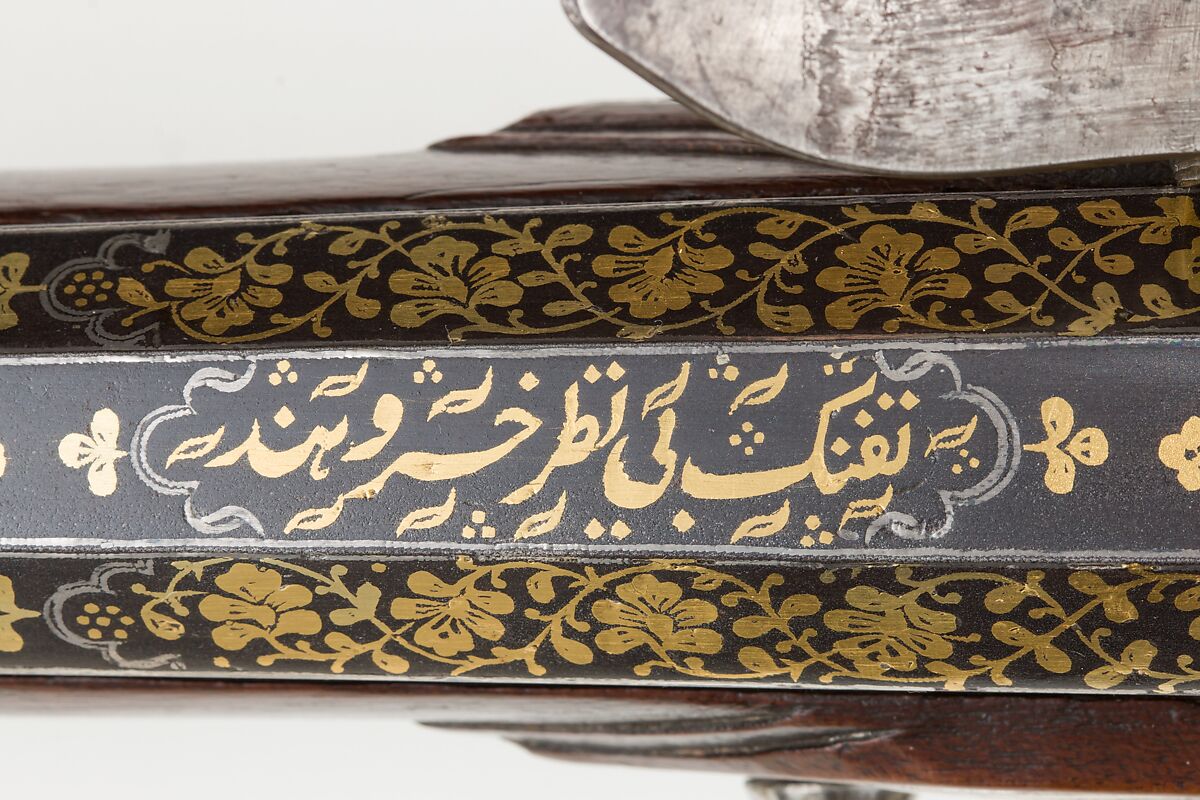 تفنک بی نظیر خسرو هند